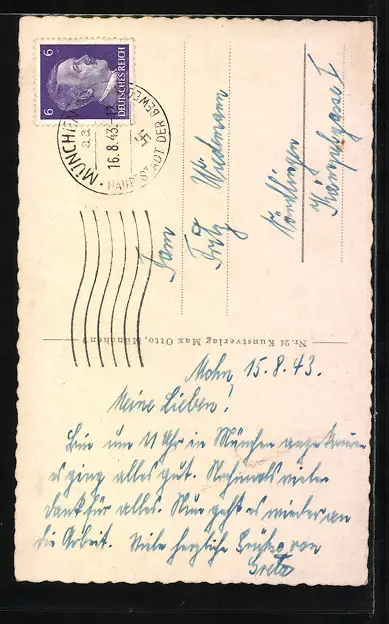 6 DEUTSCHES REICH 6
MÜNCHEN
aa
16.8.43
HAUPTSTADT DER BEWEG
Fam
Fritz Wiedemann
Nördlingen
Kämpelgasse I
Nr. 24 Kunstverlag Max Otto, München 9
Mchn, 15.8.43.
Meine Lieben!
Bin um 11 Uhr in München angekommen
es ging alles gut. Nochmals vielen
Dank für alles. Nun geht es wieder an
die Arbeit. Viele herzliche Grüße von
Greta